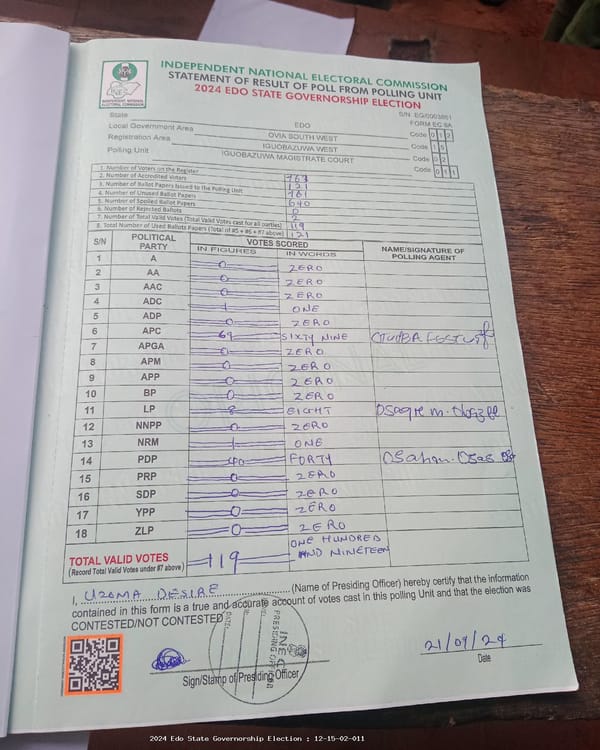 INDEPENDENT NATIONAL ELECTORAL COMMISSION
STATEMENT OF RESULT OF POLL FROM POLLING UNIT
2024 EDO STATE GOVERNORSHIP ELECTION
S/N EG/0003861
FORM EC 8A
State EDO Code 0 1 2
Local Government Area OVIA SOUTH WEST Code 1 5
Registration Area IGUOBAZUWA WEST Code 0 2
Polling Unit IGUOBAZUWA MAGISTRATE COURT Code 0 1 1
1. Number of Voters on the Register 763
2. Number of Accredited Voters 121
3. Number of Ballot Papers Issued to the Polling Unit 761
4. Number of Unused Ballot Papers 640
5. Number of Spoiled Ballot Papers 0
6. Number of Rejected Ballots 2
7. Number of Total Valid Votes (Total Valid Votes cast for all parties) 119
8. Total Number of Used Ballots Papers (Total of #5 + #6 + #7 above) 121
S/N POLITICAL PARTY VOTES SCORED NAME/SIGNATURE OF POLLING AGENT
IN FIGURES IN WORDS
1 A 0 ZERO
2 AA 0 ZERO
3 AAC 0 ZERO
4 ADC 1 ONE
5 ADP 0 ZERO
6 APC 69 SIXTY NINE
7 APGA 0 ZERO
8 APM 0 ZERO
9 APP 0 ZERO
10 BP 0 ZERO
11 LP 8 EIGHT
12 NNPP 0 ZERO
13 NRM 1 ONE
14 PDP 40 FORTY
15 PRP 0 ZERO
16 SDP 0 ZERO
17 YPP 0 ZERO
18 ZLP 0 ZERO
TOTAL VALID VOTES 119 ONE HUNDRED AND NINETEEN
(Record Total Valid Votes under #7 above)
I, UZOMA DESIRE (Name of Presiding Officer) hereby certify that the information
contained in this form is a true and accurate account of votes cast in this polling Unit and that the election was
CONTESTED/NOT CONTESTED
INEC
PRESIDING OFFICER
21/09/24
Sign/Stamp of Presiding Officer
Date
2024 Edo State Governorship Election : 12-15-02-011